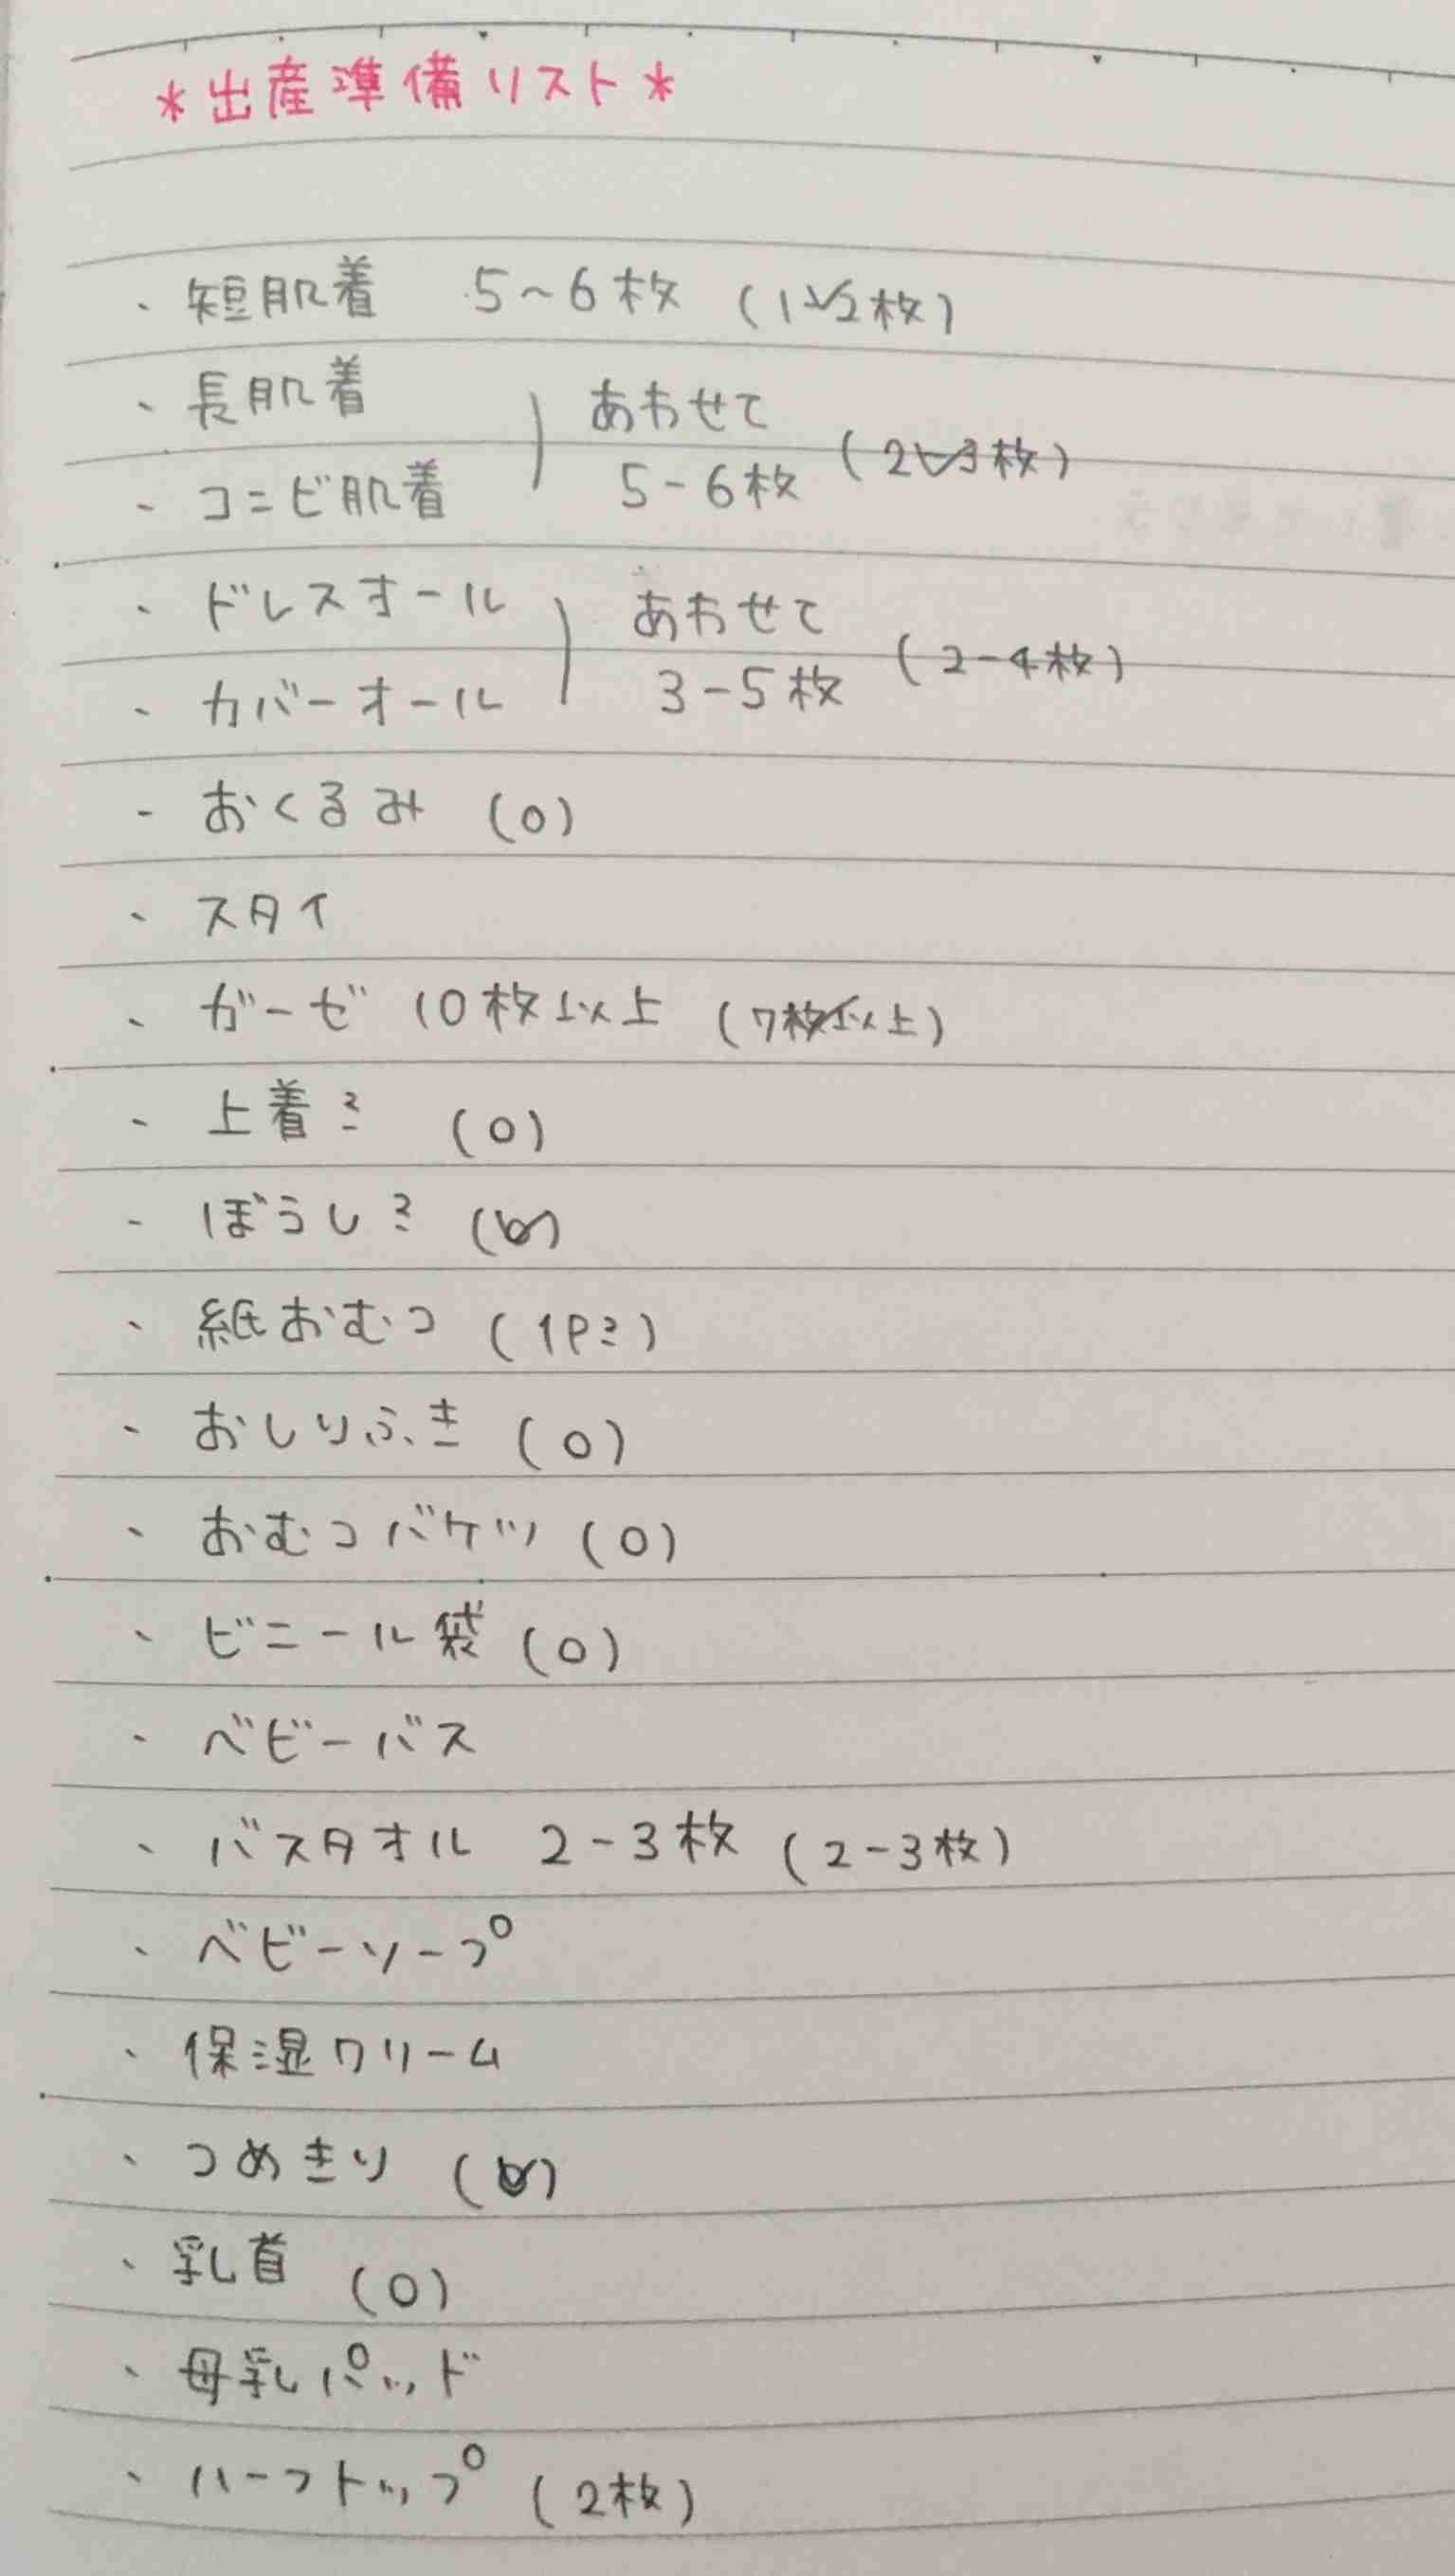 *出産準備リスト*
・短肌着 5~6枚 (1-2枚)
・長肌着
・コンビ肌着
あわせて
5-6枚 (2-3枚)
・ドレスオール
・カバーオール
あわせて
3-5枚 (2-4枚)
・おくるみ (0)
・スタイ
・ガーゼ 10枚以上 (7枚以上)
・上着? (0)
・ぼうし? (0)
・紙おむつ (1P?)
・おしりふき (0)
・おむつバケツ (0)
・ビニール袋 (0)
・ベビーバス
・バスタオル 2-3枚 (2-3枚)
・ベビーソープ
・保湿クリーム
・つめきり (0)
・乳首 (0)
・母乳パッド
・ハーフトップ (2枚)